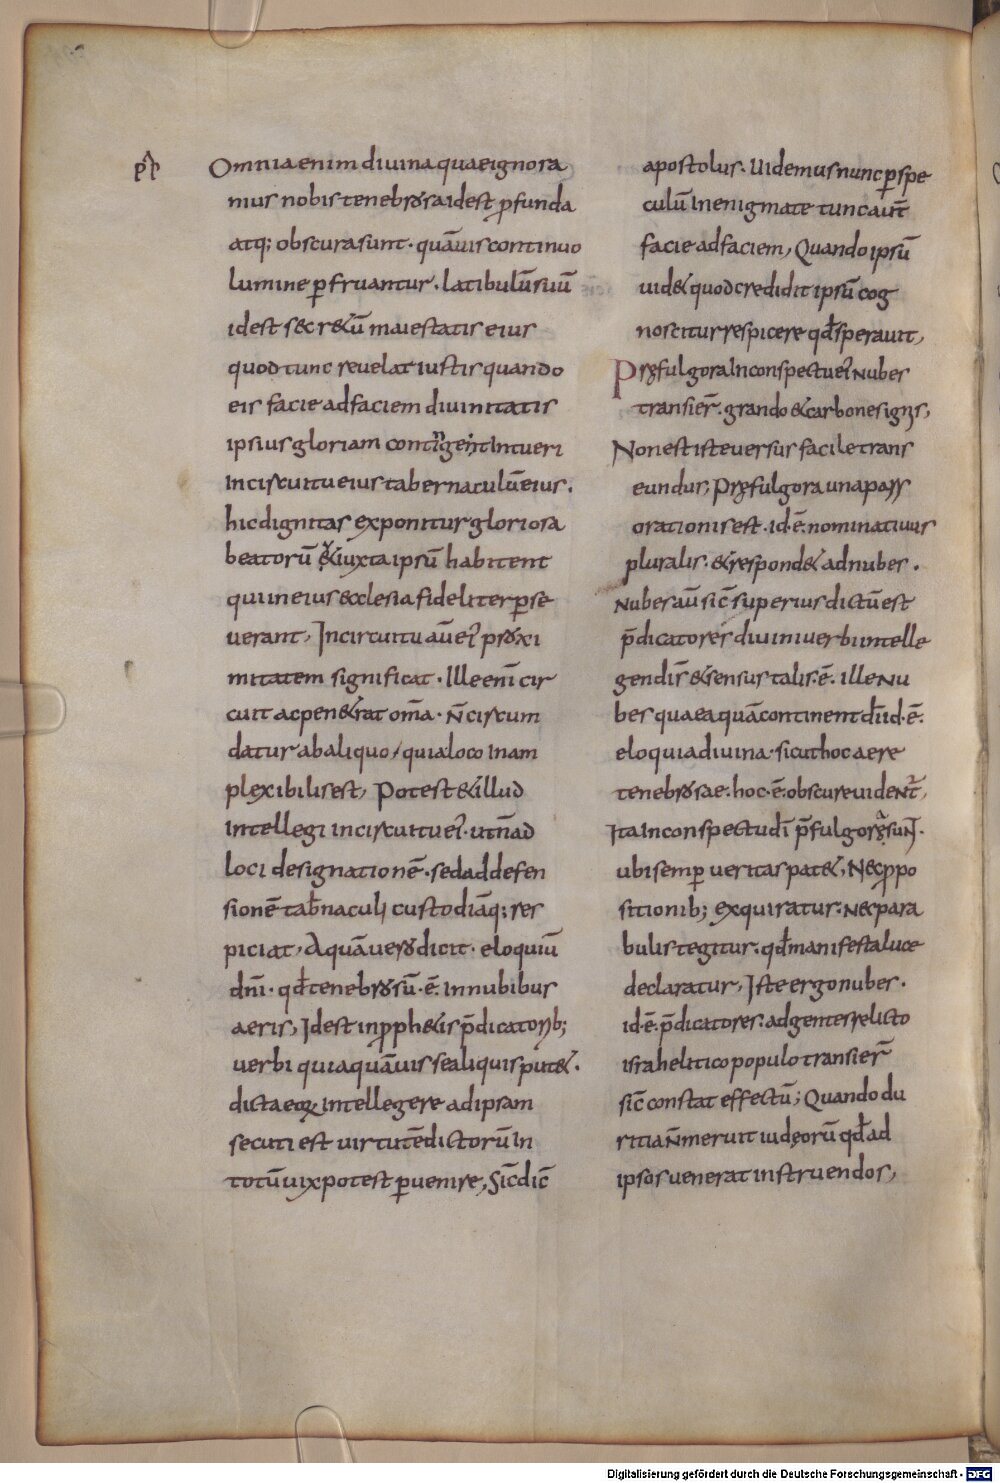 Omnia enim divina quae ignora
mus nobis tenebrosa idest ꝓfunda
atq; obscura sunt. quāvis continuo
lumine ꝑfruantur. latibulū suū
idest secr&ū maiestatis eius
quod tunc revelat iustis quando
eis facie ad faciem divinitatis
ipsius gloriam contigerit intueri
In circuitu eius tabernaculū eius.
hic dignitas exponitur gloriosa
beatorū & iuxta ipsū habitent
qui in eius ecclesia fideliter ꝑse
verant, In circuitu aū ei' proxi
mitatem significat. Ille enī cir
cuit ac pen&rat om̄a. n̄ circum
datur ab aliquo, quia loco inam
plexibilis est, Potest & illud
intellegi in circuitu ei'. ut n̄ ad
loci designationē. sed ad defen
sionē tab̄naculi custodiāq; res
piciat, Aquā vero dicit. eloquiū
dn̄i. qd̄ tenebrosū .ē. in nubibus
aeris, Idest in ꝓph&is p̄dicatorib;
verbi quia quāvis se aliquis put&.
dicta eoꝝ intellegere ad ipsam
secuti est virtutē dictorū in
totū vix potest ꝑvenire, Sic̄ dic̄
apostolus. Uidemus nunc ꝑ spe
culū in enigmate tunc aut̄
facie ad faciem, Quando ipsū
vid& quod credidit ipsū cog
noscitur respicere qd̄ speravit,
Pręfulgora In conspectu ei' nubes
transier̄. grando & carbones ignis,
Non est iste versus facile trans
eundus, Pręfulgora una pars
orationis est. id.ē. nominativus
pluralis. & respond& ad nubes.
Nubes aū sic̄ superius dictū est
p̄dicatores divini verbi intelle
gendi s̄ & sensus talis .ē. Ille nu
bes quae aquā continent dn̄i id.ē.
eloquia divina. sicut hoc aere
tenebrosae. hoc .ē. obscure vident̄,
Ita In conspectu dī p̄fulgorę sunt.
ubi semꝑ veritas pat&, Nec ꝓpo
sitionib; exquiratur. nec para
bulis tegitur. qd̄ manifesta luce
declaratur, Iste ergo nubes.
id.ē. p̄dicatores. ad gentes relicto
israhelitico populo transier̄
sic̄ constat effectū; Quando du
ritia n̄ meruit iudęorū qd̄ ad
ipsos venerat instruendos,
Digitalisierung gefördert durch die Deutsche Forschungsgemeinschaft - DFG